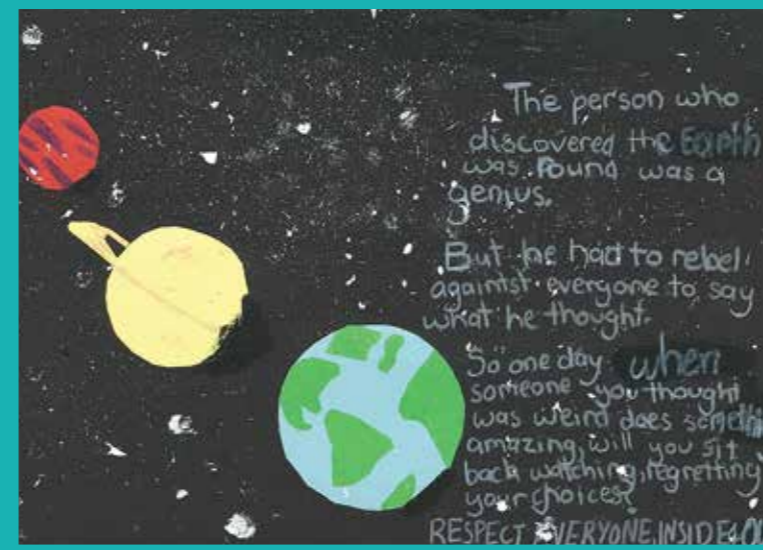 The person who
discovered the Earth
was Pound was a
genius.
But he had to rebel
againtst everyone to say
what he thought.
So one day when
someone you thought
was weird does somethi
amazing, will you sit
back watching, regretting
your choices?
RESPECT EVERYONE, INSIDE &